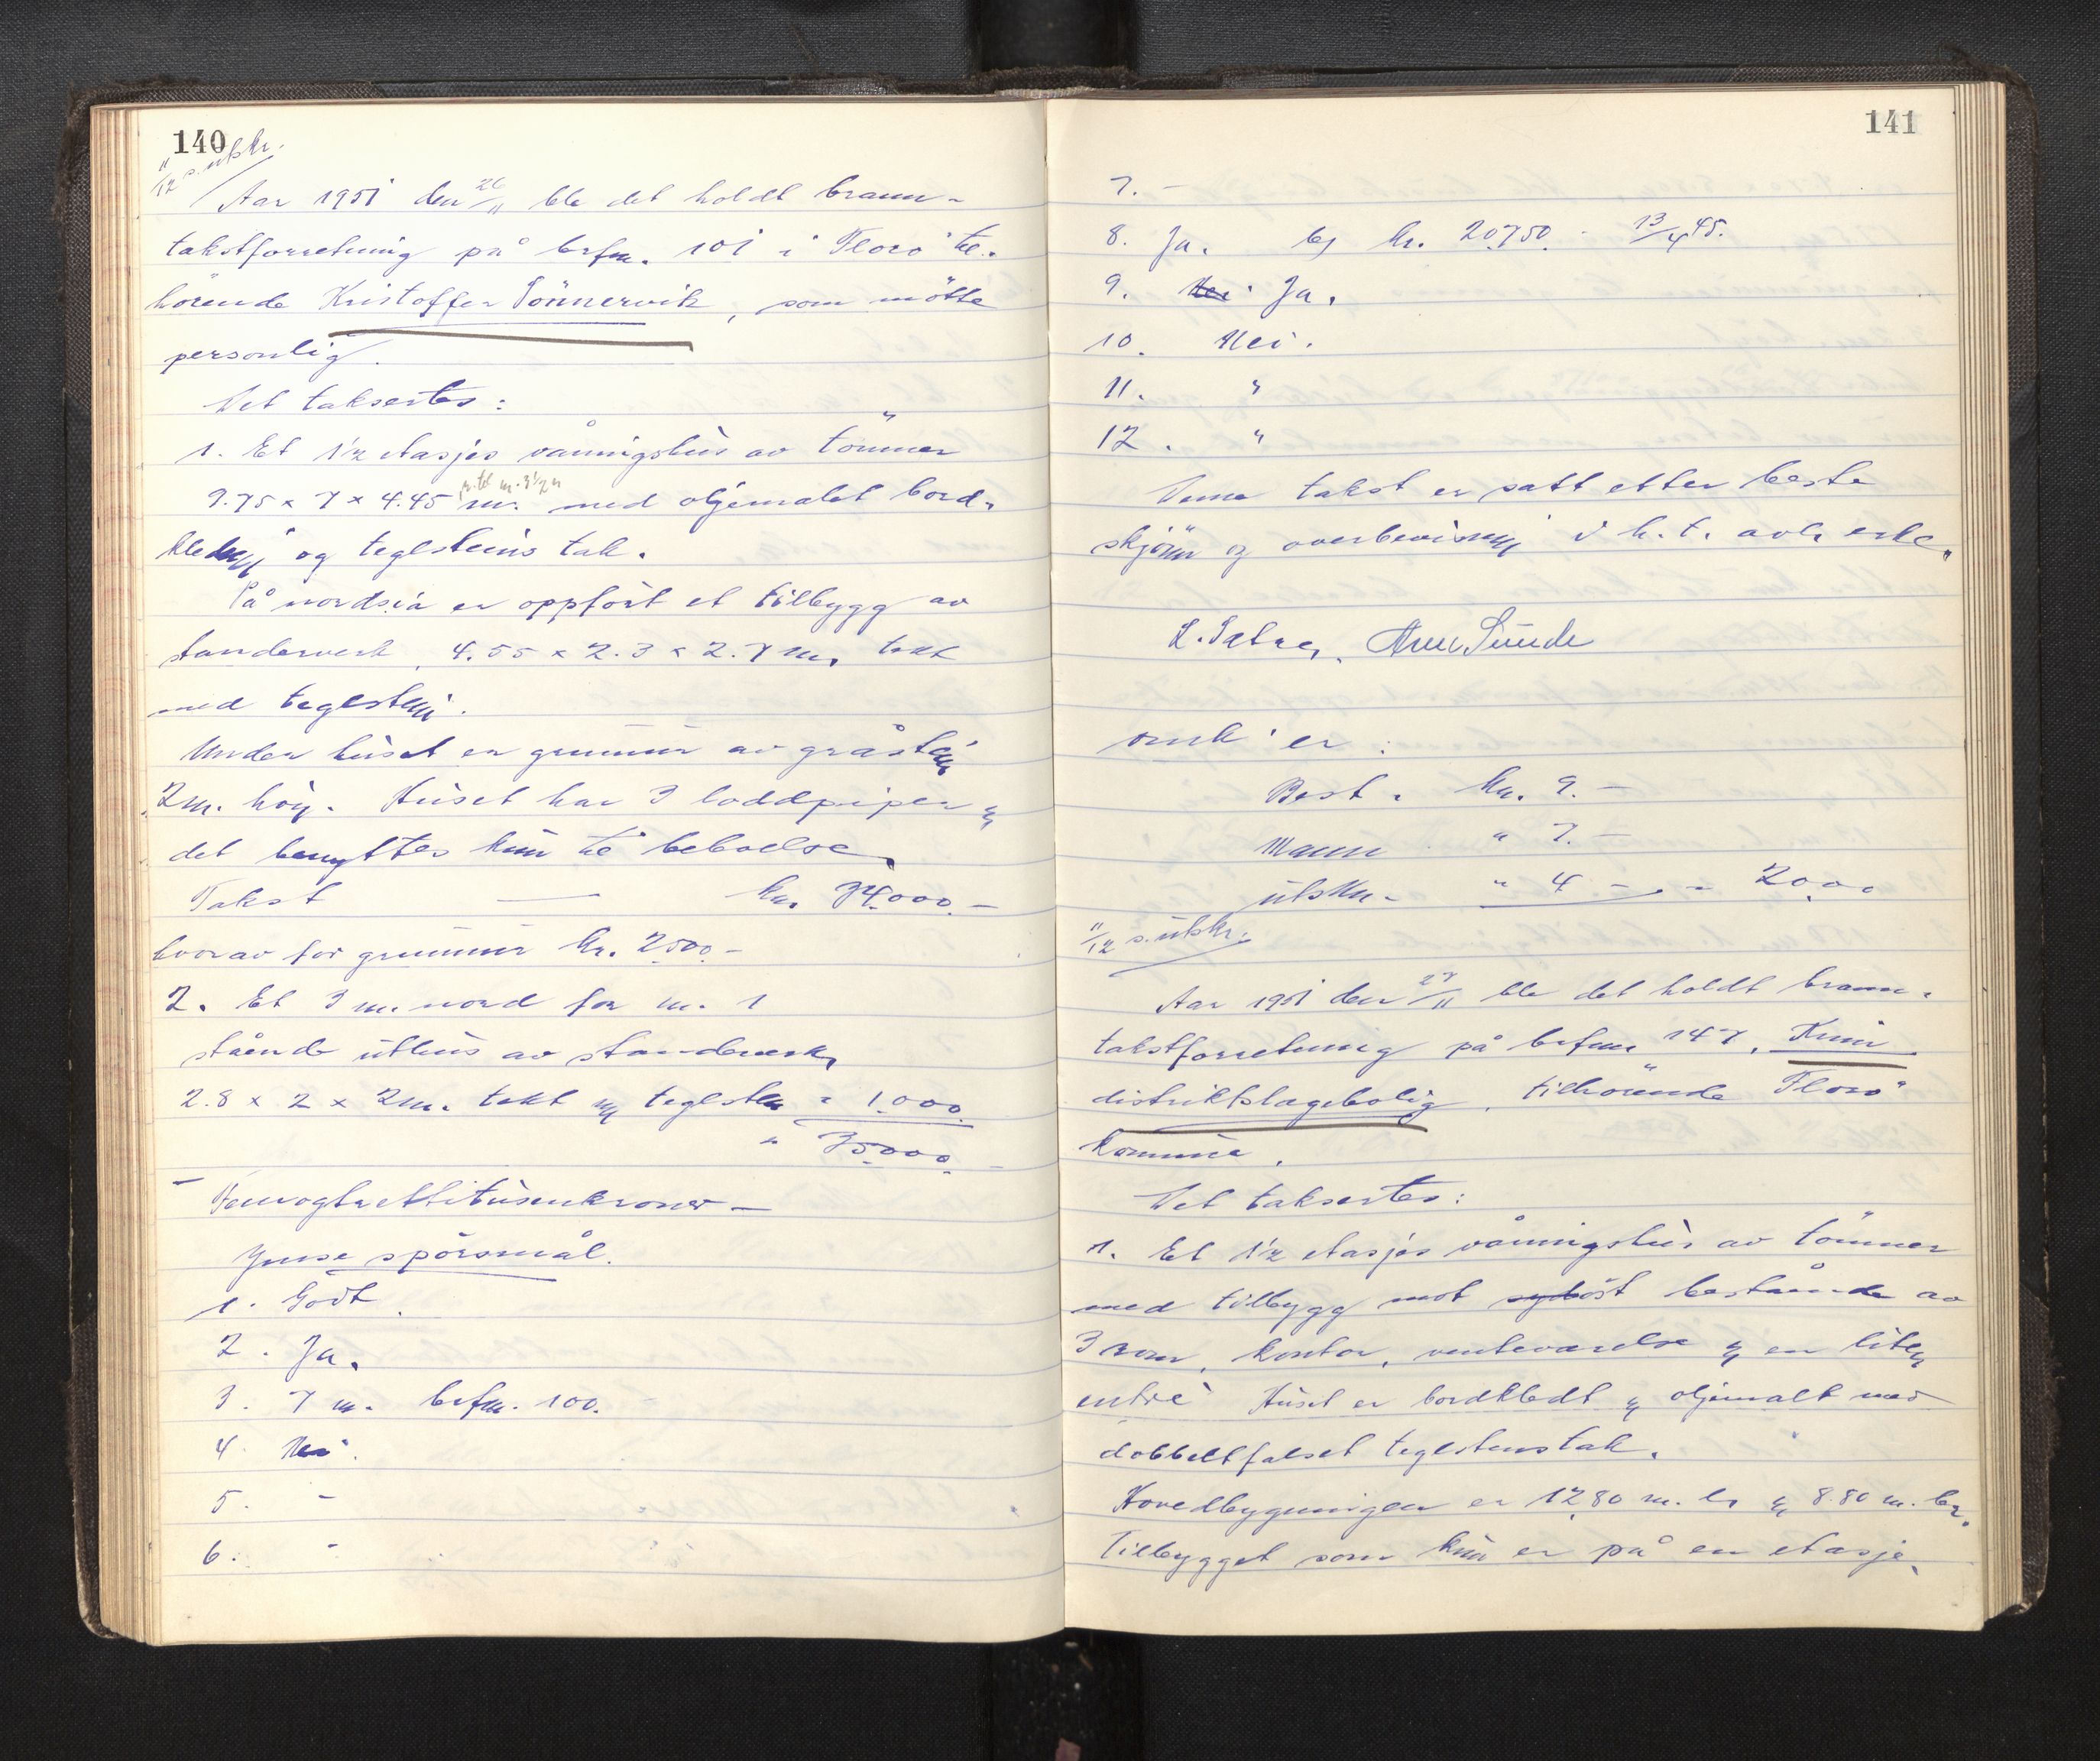 140
11/12 s. utskr.
Aar 1951 den 26/11 ble det holdt brann-
takstforretning på brfnr. 101 i Florö til-
hörende Kristoffer Tönnervik, som mötte
personlig.
Det taksertes:
1. Et 1 1/2 etasjes våningshus av tömmer
9.75 x 7 x 4.45 m. med oljemalet bord-
kledning og teglsteins tak.
På nordsia er oppfört et tilbygg av
standerverk, 4.55 x 2.3 x 2.7 m, tekt
med teglstein.
Under huset er grunnmur av gråstein
2 m. höy. Huset har 3 loddpiper og
det benyttes kun til beboelse.
Takst — kr. 34.000.-
hvorav for grunnmur kr. 2500.-
2. Et 3 m. nord for nr. 1
stående uthus av standerverk,
2.8 x 2 x 2 m. tekt m/ teglsten " 1.000.
" 35.000.-
- Femogtrettitusenkroner -
Ymse spörsmål.
1. Godt.
2. Ja.
3. 7 m. brfnr. 100.
4. Nei.
5. -
6. -
141
7. -
8. Ja. bg kr. 20750.- 13/4 45.
9. Nei Ja.
10. Nei.
11. "
12. "
Denne takst er satt etter beste
skjönn og overbevisning i h. t. avla ed.
L. Sætre, Arne Sunde
omk. er:
Best. kr. 9.-
Mann " 7.-
utskr. " 4 - = 20.00
11/12 s. utskr.
Aar 1951 den 27/11 ble det holdt brann-
takstforretning på brfnr 147, Kinn
distriktslegebolig, tilhörende Florö
kommune.
Det taksertes:
1. Et 1 1/2 etasjes våningshus av tömmer
med tilbygg mot syd öst bestående av
3 rom, kontor, venteværelse og en liten
entre. Huset er bordkledt og oljemalt med
dobbeltfalset teglstenstak.
Hovedbygningen er 12.80 m. lg og 8.80 m. br.
Tilbygget som kun er på en etasje,